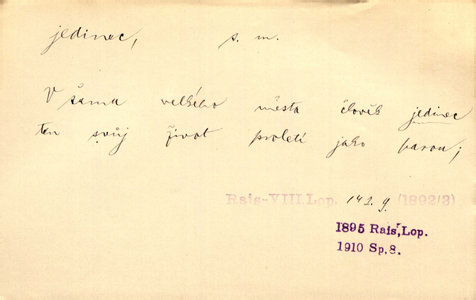 jedinec, s. m.
V šumu velkého města člověk jedinec
ten svůj život proletí jako
Rais-VIII. Lop. 142. 9. (1892/3)
1895 Rais, Lop.
1910 Sp. 8.